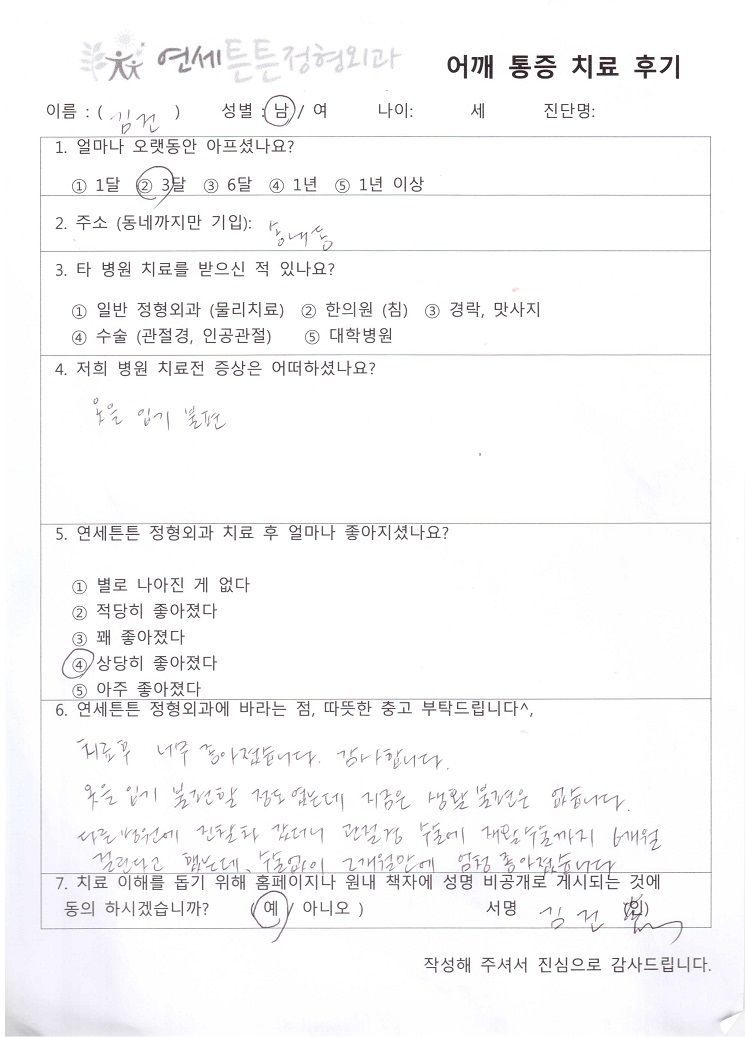 연세튼튼정형외과
어깨 통증 치료 후기
이름 : ( 김건 ) 성별 : 남 / 여 나이: 세 진단명:
1. 얼마나 오랫동안 아프셨나요?
① 1달 ② 3달 ③ 6달 ④ 1년 ⑤ 1년 이상
2. 주소 (동네까지만 기입):
3. 타 병원 치료를 받으신 적 있나요?
① 일반 정형외과 (물리치료) ② 한의원 (침) ③ 경락, 맛사지
④ 수술 (관절경, 인공관절) ⑤ 대학병원
4. 저희 병원 치료전 증상은 어떠하셨나요?
옷을 입기 불편
5. 연세튼튼 정형외과 치료 후 얼마나 좋아지셨나요?
① 별로 나아진 게 없다
② 적당히 좋아졌다
③ 꽤 좋아졌다
④ 상당히 좋아졌다
⑤ 아주 좋아졌다
6. 연세튼튼 정형외과에 바라는 점, 따뜻한 충고 부탁드립니다^,
치료후 너무 좋아졌습니다. 감사합니다.
옷을 입기 불편할 정도였는데 지금은 생활 불편은 없습니다.
다른병원에 진찰차 갔더니 관절경 수술에 재활수술까지 6개월
걸린다고 했는데, 수술없이 2개월만에 엄청 좋아졌습니다
7. 치료 이해를 돕기 위해 홈페이지나 원내 책자에 성명 비공개로 게시되는 것에
동의 하시겠습니까? ( 예 / 아니오 ) 서명 김건 (인)
작성해 주셔서 진심으로 감사드립니다.